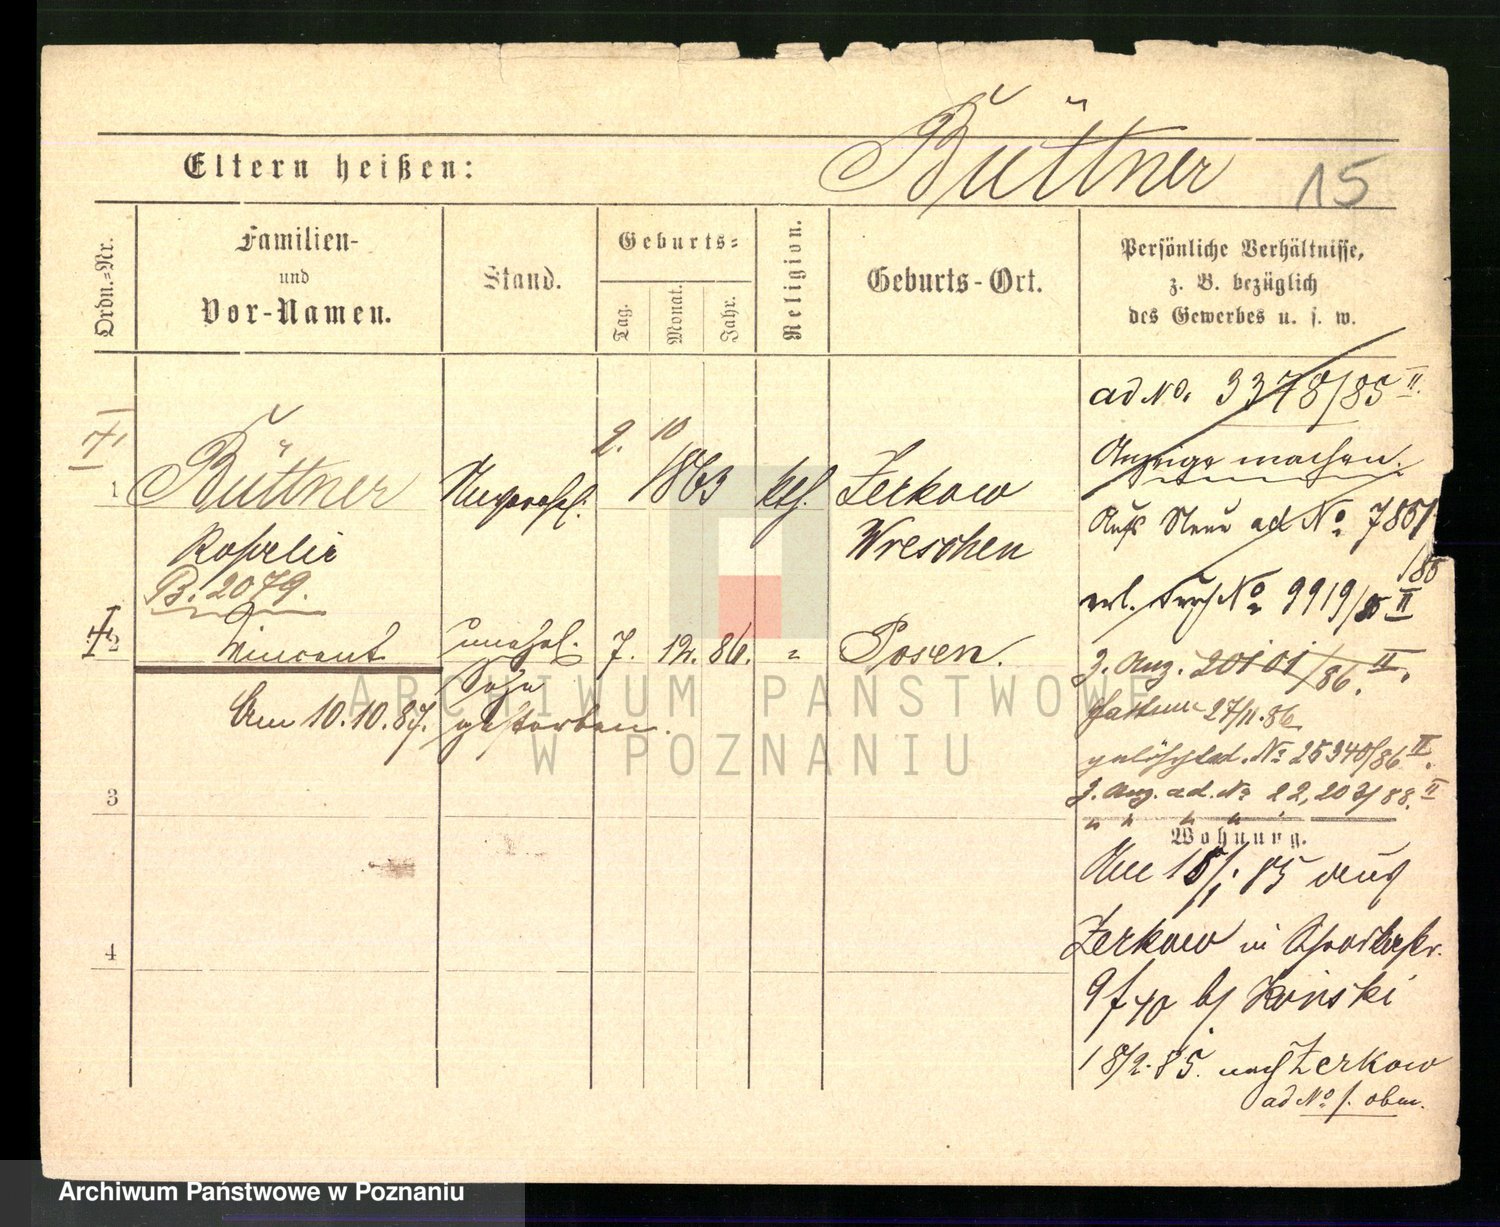 Büttner
15
Eltern heißen:
Ordn.-Nr.
Familien-
und
Vor-Namen.
Stand.
Geburts-
Tag.
Monat.
Jahr.
Religion.
Geburts-Ort.
Persönliche Verhältnisse,
z. B. bezüglich
des Gewerbes u. s. w.
ad No. 3378/85 II.
Anzeige machen.
1
Büttner
2. 10
1863
kth.
Zerkow
Rosalie
Wreschen
B. 2079.
Aufs Neue ad No 7851
/85
erl. durch No 9919/85 II
2
Vincent
unehel.
Sohn
7. 12. 86.
"
Posen.
z. Anz. 20101/86. II.
27/11.86
Am 10.10.87. gestorben.
gelöscht ad. No 25340/86 II.
z. Anz. ad. No 22,203/88. II
3
" " " "
Wohnung.
Am 15/1. 85 aus
Zerkow in
bei Konski
4
18/2. 85. nach Zerkow
ad No s. oben.
ARCHIWUM PAŃSTWOWE
W POZNANIU
Archiwum Państwowe w Poznaniu